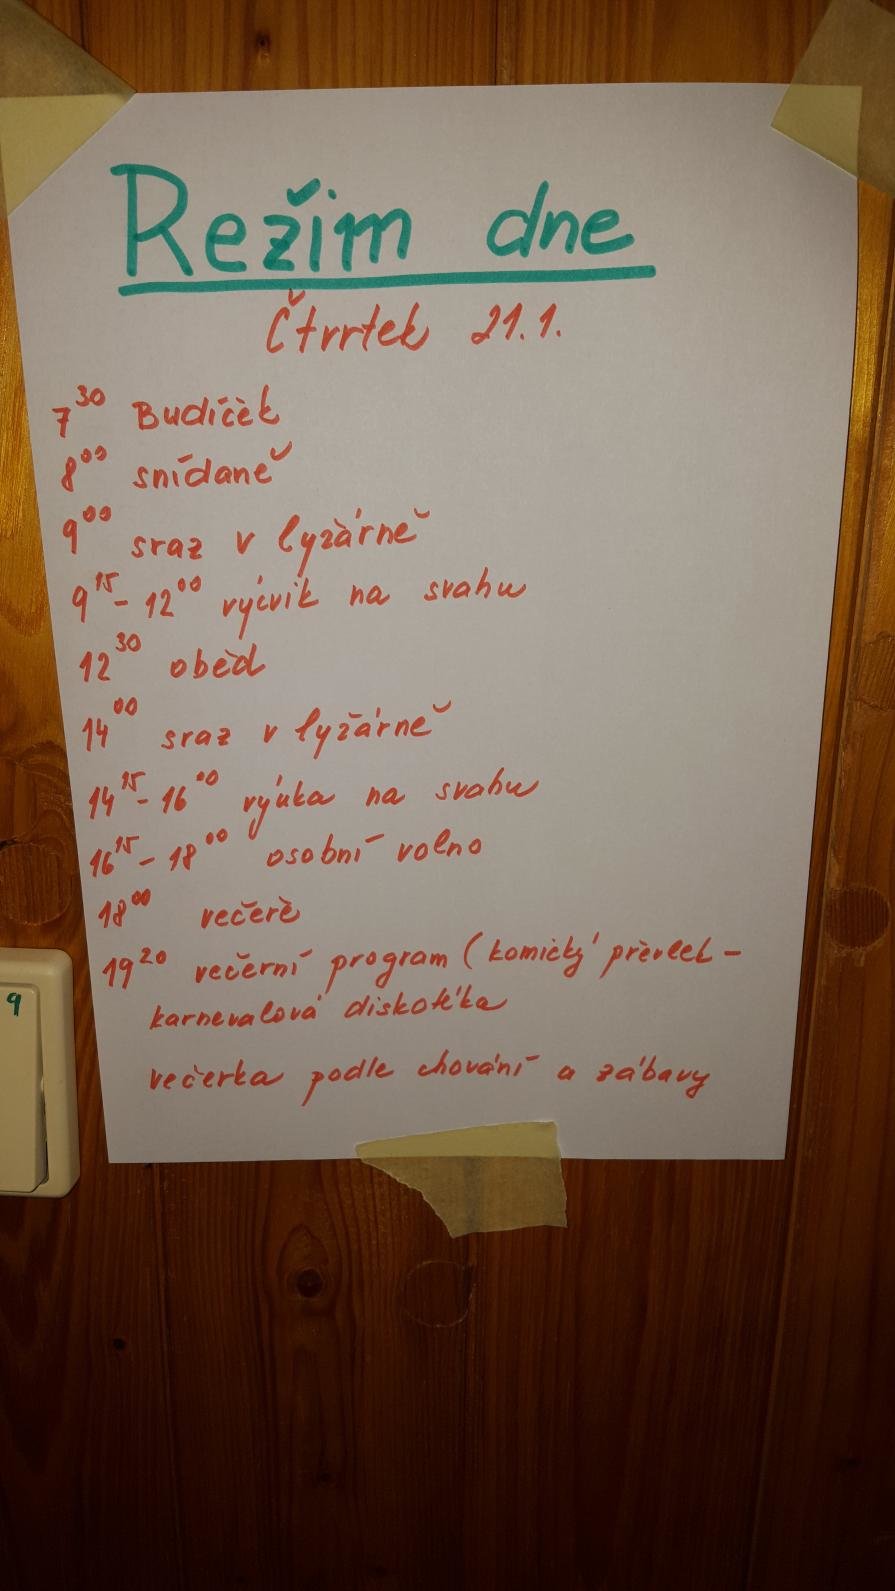 Režim dne
Čtvrtek 21.1.
7³⁰ Budíček
8⁰⁰ snídaně
9⁰⁰ sraz v lyžárně
9¹⁵ - 12⁰⁰ výcvik na svahu
12³⁰ oběd
14⁰⁰ sraz v lyžárně
14¹⁵ - 16⁰⁰ výuka na svahu
16¹⁵ - 18⁰⁰ osobní volno
18⁰⁰ večeře
19²⁰ večerní program (komický převlek -
karnevalová diskotéka
večerka podle chování a zábavy
9